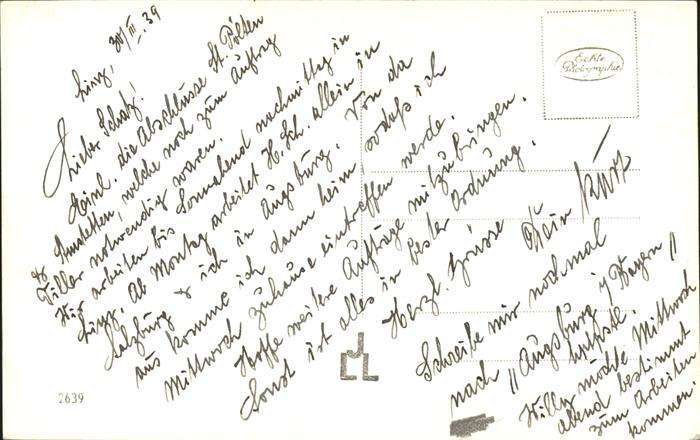 Linz, 30/III.39
Lieber Schatz!
Beinl. die Abschlüsse St. Pölten
& Amstetten, welche noch zum Auftrag
Tiller notwendig waren.
Wir arbeiten bis Sonnabend nachmittag in
Linz. Ab Montag arbeitet H. Sch. allein in
Salzburg & ich in Augsburg. Von da
aus komme ich dann heim, sodaß ich
Mittwoch zuhause eintreffen werde.
Hoffe weitere Aufträge mitzubringen.
Sonst ist alles in bester Ordnung.
Herzl. Grüsse Dein
Schreibe mir nochmal
nach "Augsburg i/Bayern"
Willy möchte Mittwoch
abend bestimmt
zum Arbeiten
kommen
Echte
Photographie
2639